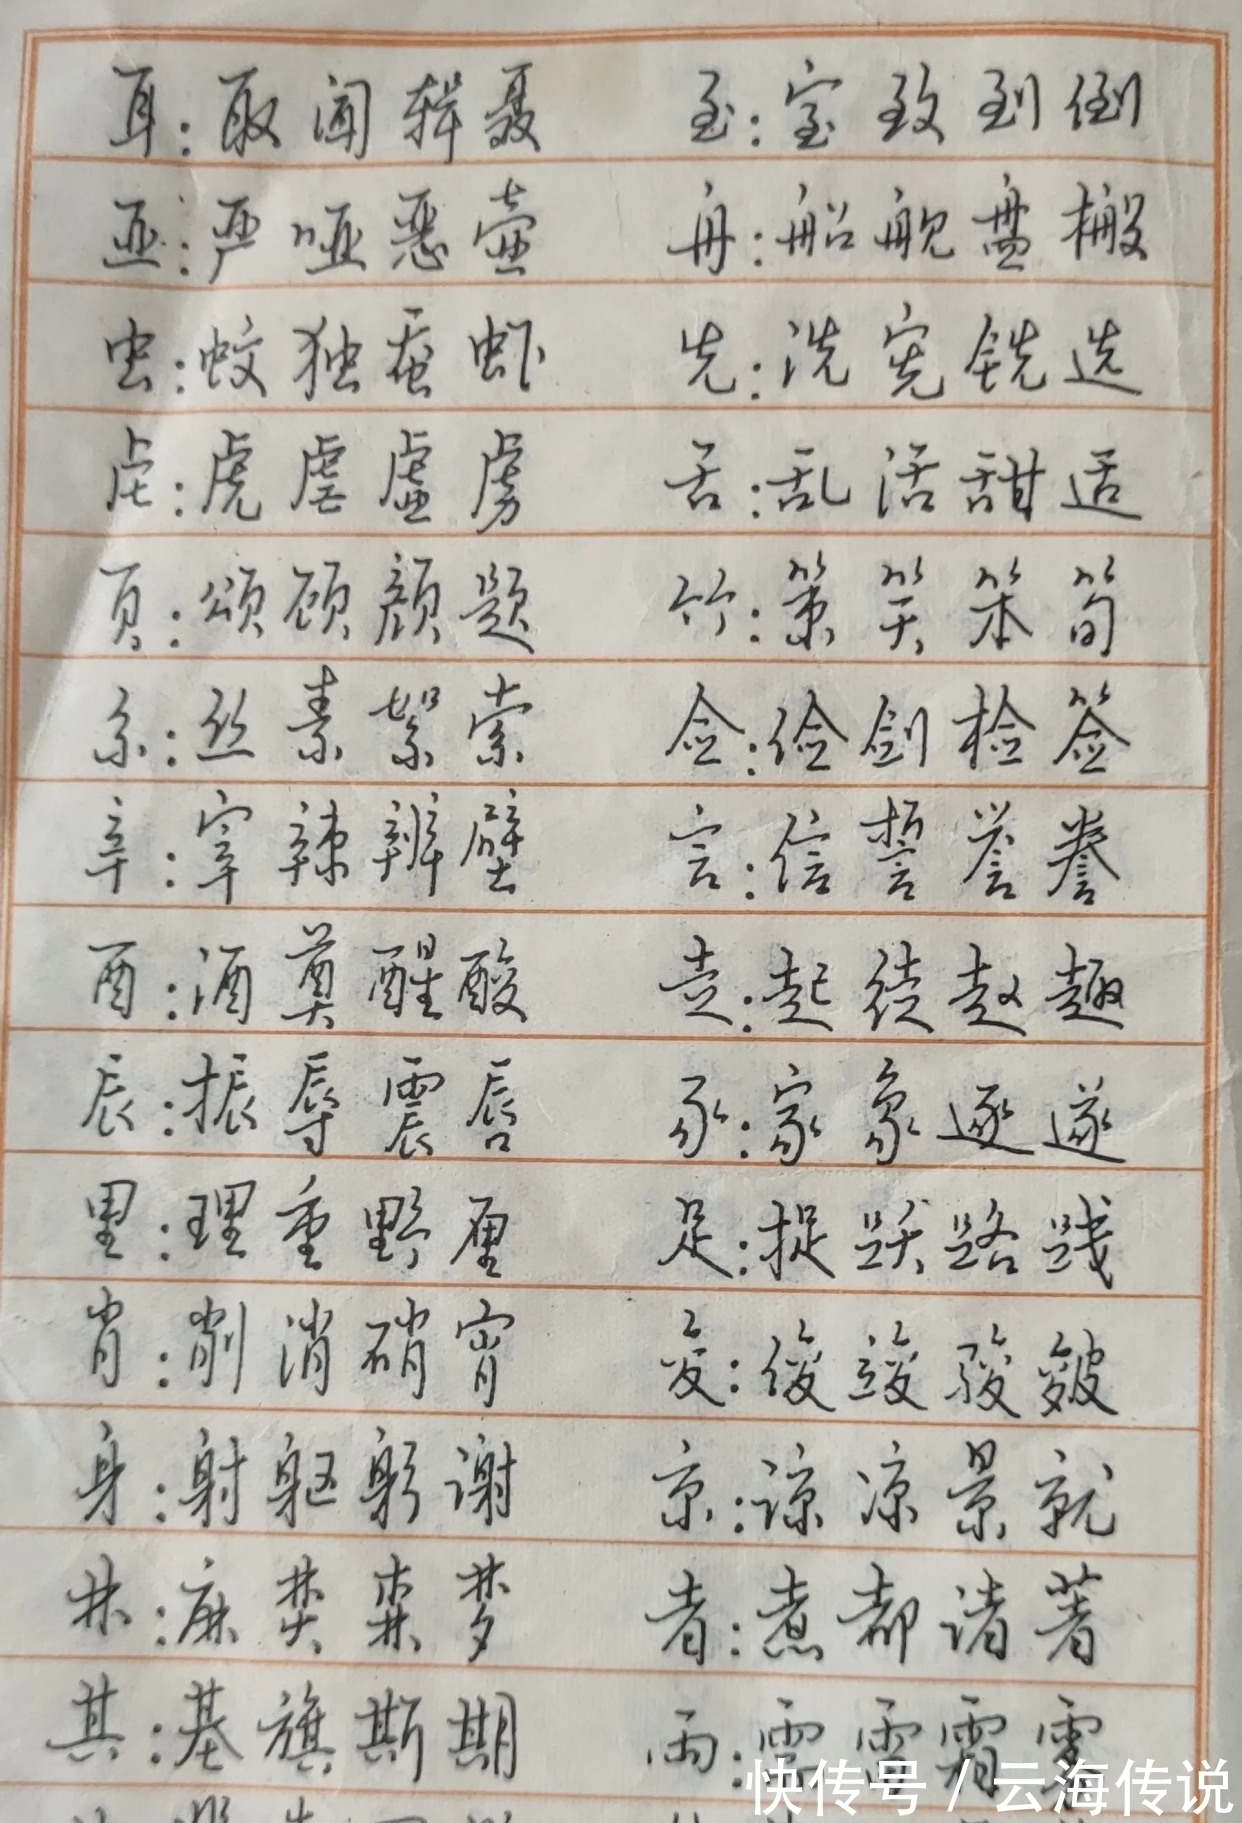 耳:取闻辑聂 至:室致到倒
亚:严哑恶壶 舟:船舰盘搬
虫:蚊独蚕虾 先:洗宪铣选
虍:虎虐虚虏 舌:乱活甜适
页:颂顾颜题 竹:策笑笨筍
糸:丝素絮索 佥:俭剑检签
辛:宰辣辨壁 言:信誓誉誊
酉:酒奠醒酸 走:起徒赵趣
辰:振辱震唇 豕:家象逐遂
里:理重野厘 足:捉跃路践
肖:削消硝宵 夋:俊竣骏皴
身:射躯躬谢 京:谅凉景就
林:麻焚森梦 者:煮都诸著
其:基旗斯期 雨:雪雷霜
快传号/云海传说